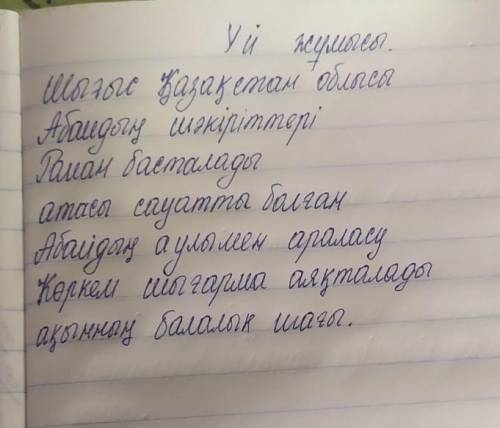 Үй жұмысы.
Шығыс Қазақстан облысы
Абайдың шәкірттері
Роман басталады
атасы сауатты болған
Абайдың аулымен араласу
Көркем шығарма аяқталады
ақынның балалық шағы.